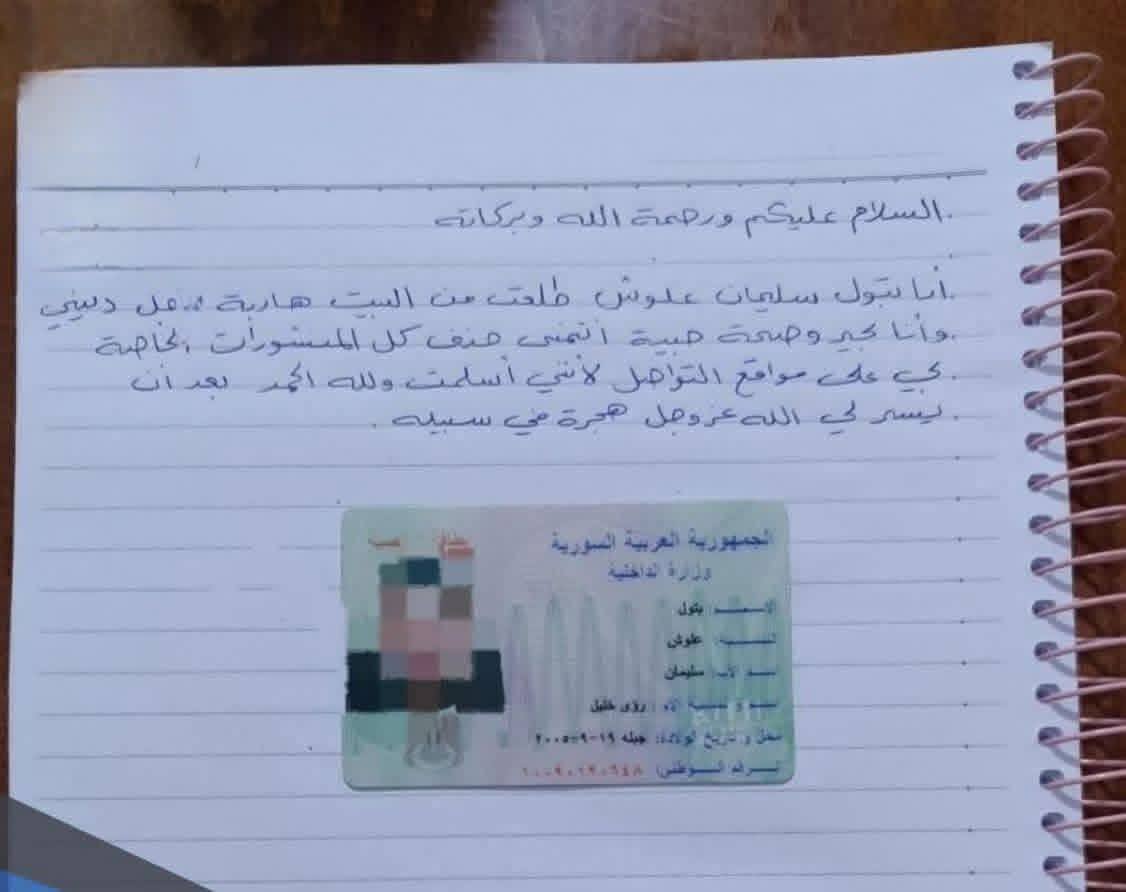 السلام عليكم ورحمة الله وبركاته.
أنا بتول سليمان علوش طلعت من البيت هاربة ديني
وأنا بخير وصحة طيبة أتمنى حذف كل المنشورات الخاصة
بي على مواقع التواصل لأنني أسلمت ولله الحمد بعد أن
يسر لي الله عز وجل هجرة في سبيله.
الجمهورية العربية السورية
وزارة الداخلية
الاسم: بتول
النسبة: علوش
اسم الأب: سليمان
رؤى خليل
محل و تاريخ الولادة: جبله ١٩-٩-٢٠٠٥
الرقم الوطني: